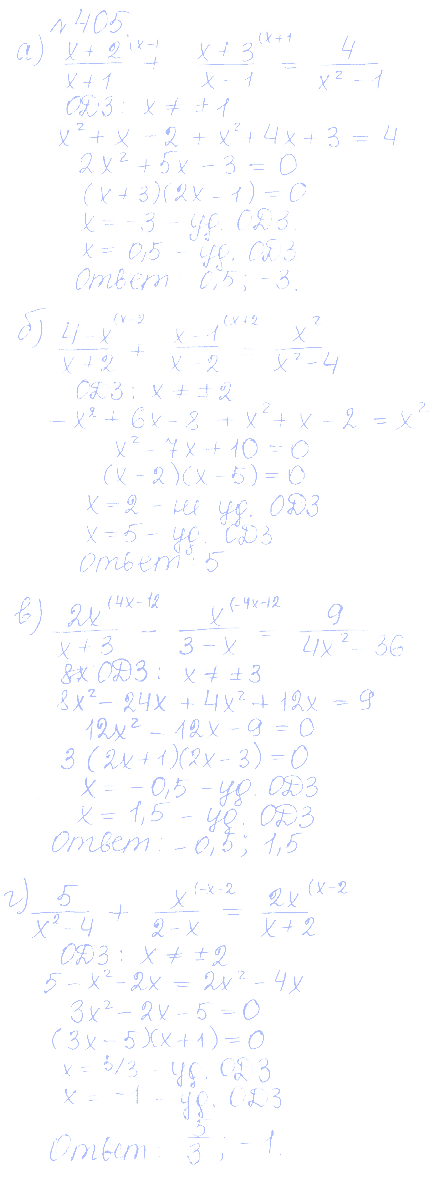 №405
а) (x+2)/(x+1) ^(x-1 + (x+3)/(x-1) ^(x+1 = 4/(x²-1)
ОДЗ: x ≠ ±1
x² + x - 2 + x² + 4x + 3 = 4
2x² + 5x - 3 = 0
(x+3)(2x-1) = 0
x = -3 - уд. ОДЗ.
x = 0,5 - уд. ОДЗ
Ответ 0,5; -3.
б) (4-x)/(x+2) ^(x-2 + (x-1)/(x-2) ^(x+2 = x²/(x²-4)
ОДЗ: x ≠ ±2
-x² + 6x - 8 + x² + x - 2 = x²
x² - 7x + 10 = 0
(x-2)(x-5) = 0
x = 2 - не уд. ОДЗ
x = 5 - уд. ОДЗ
Ответ: 5
в) 2x/(x+3) ^(4x-12 - x/(3-x) ^(-4x-12 = 9/(4x²-36)
8x ОДЗ: x ≠ ±3
8x² - 24x + 4x² + 12x = 9
12x² - 12x - 9 = 0
3(2x+1)(2x-3) = 0
x = -0,5 - уд. ОДЗ
x = 1,5 - уд. ОДЗ
Ответ: -0,5; 1,5
г) 5/(x²-4) + x/(2-x) ^(-x-2 = 2x/(x+2) ^(x-2
ОДЗ: x ≠ ±2
5 - x² - 2x = 2x² - 4x
3x² - 2x - 5 = 0
(3x-5)(x+1) = 0
x = 5/3 - уд. ОДЗ
x = -1 - уд. ОДЗ
Ответ: 5/3; -1.